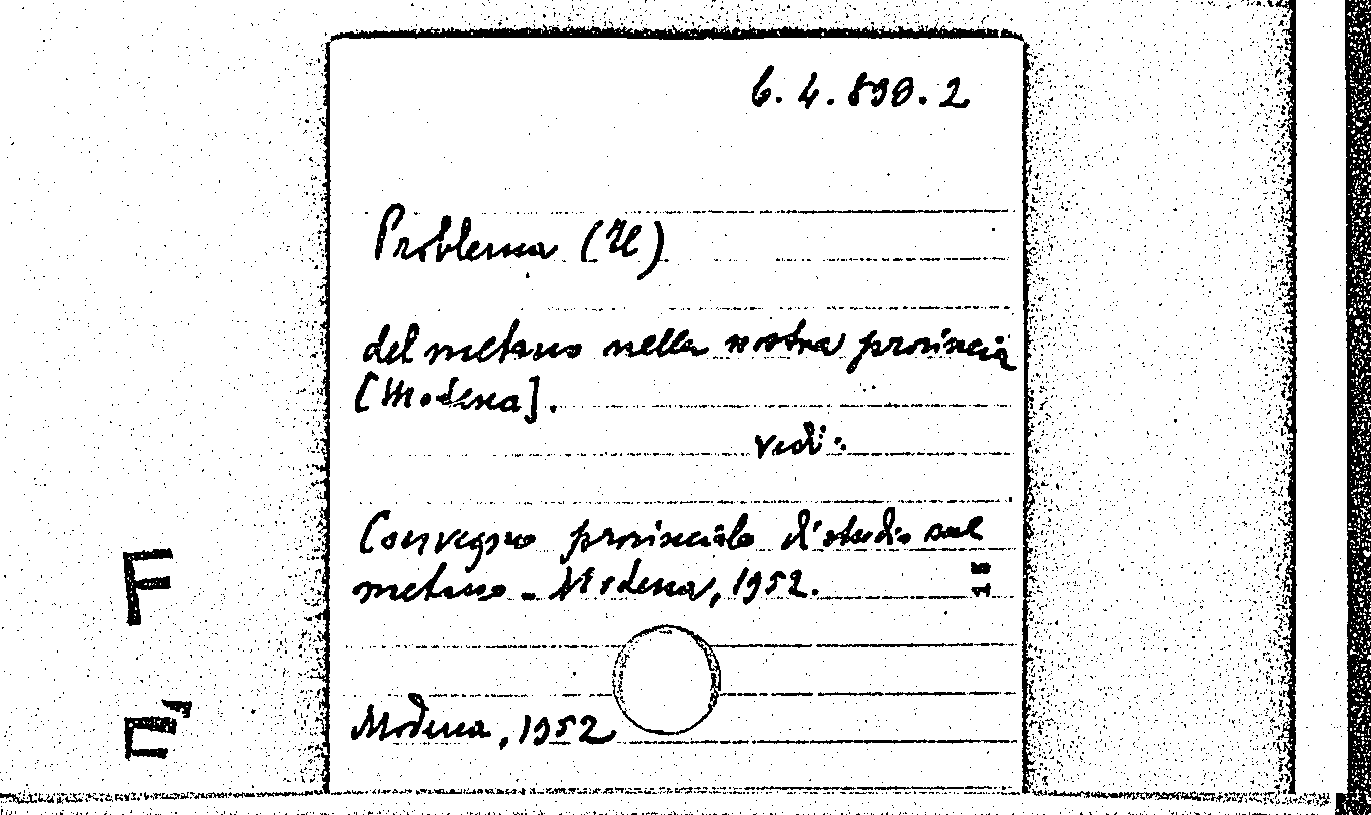 6.4.890.2
Problema (Il)
del metano nella nostra provincia
[Modena].
vedi:
Convegno provinciale d'studio sul
metano - Modena, 1952.
15
Modena, 1952
F